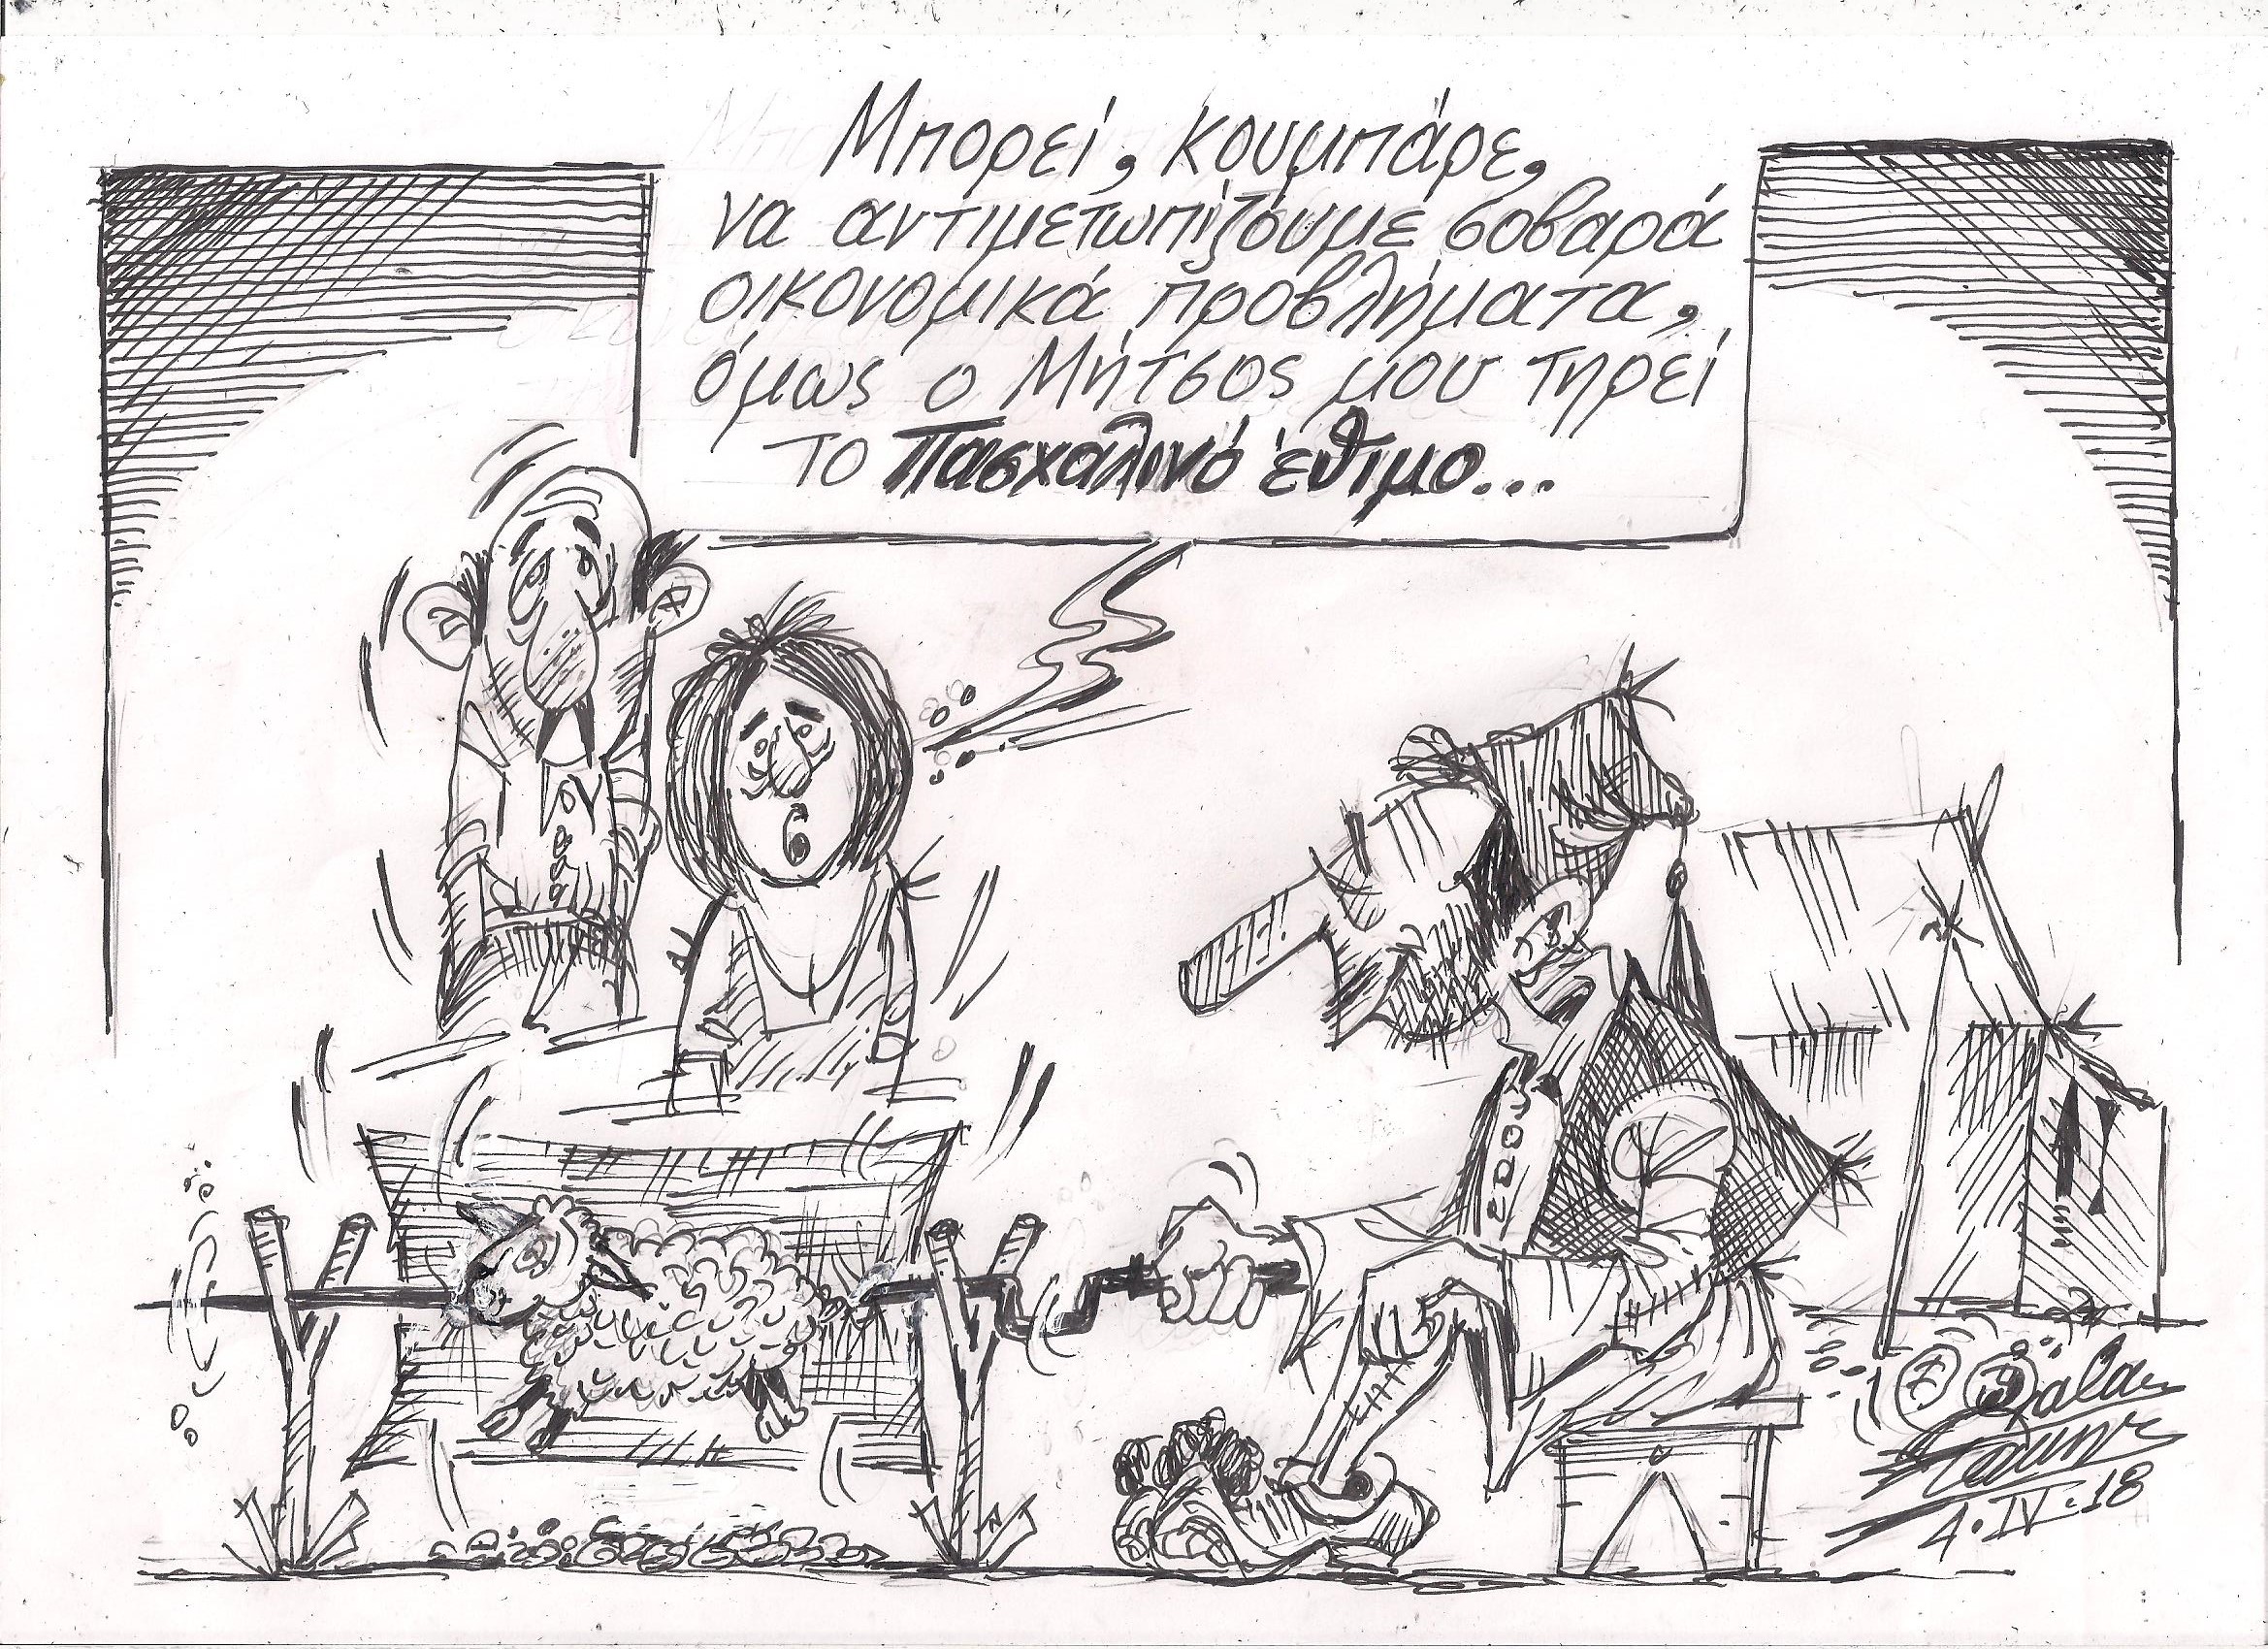 Μπορεί, κουμπάρε,
να αντιμετωπίζουμε σοβαρά
οικονομικά προβλήματα,
όμως ο Μήτσος μου τηρεί
το Πασχαλινό έθιμο...
4.IV.18